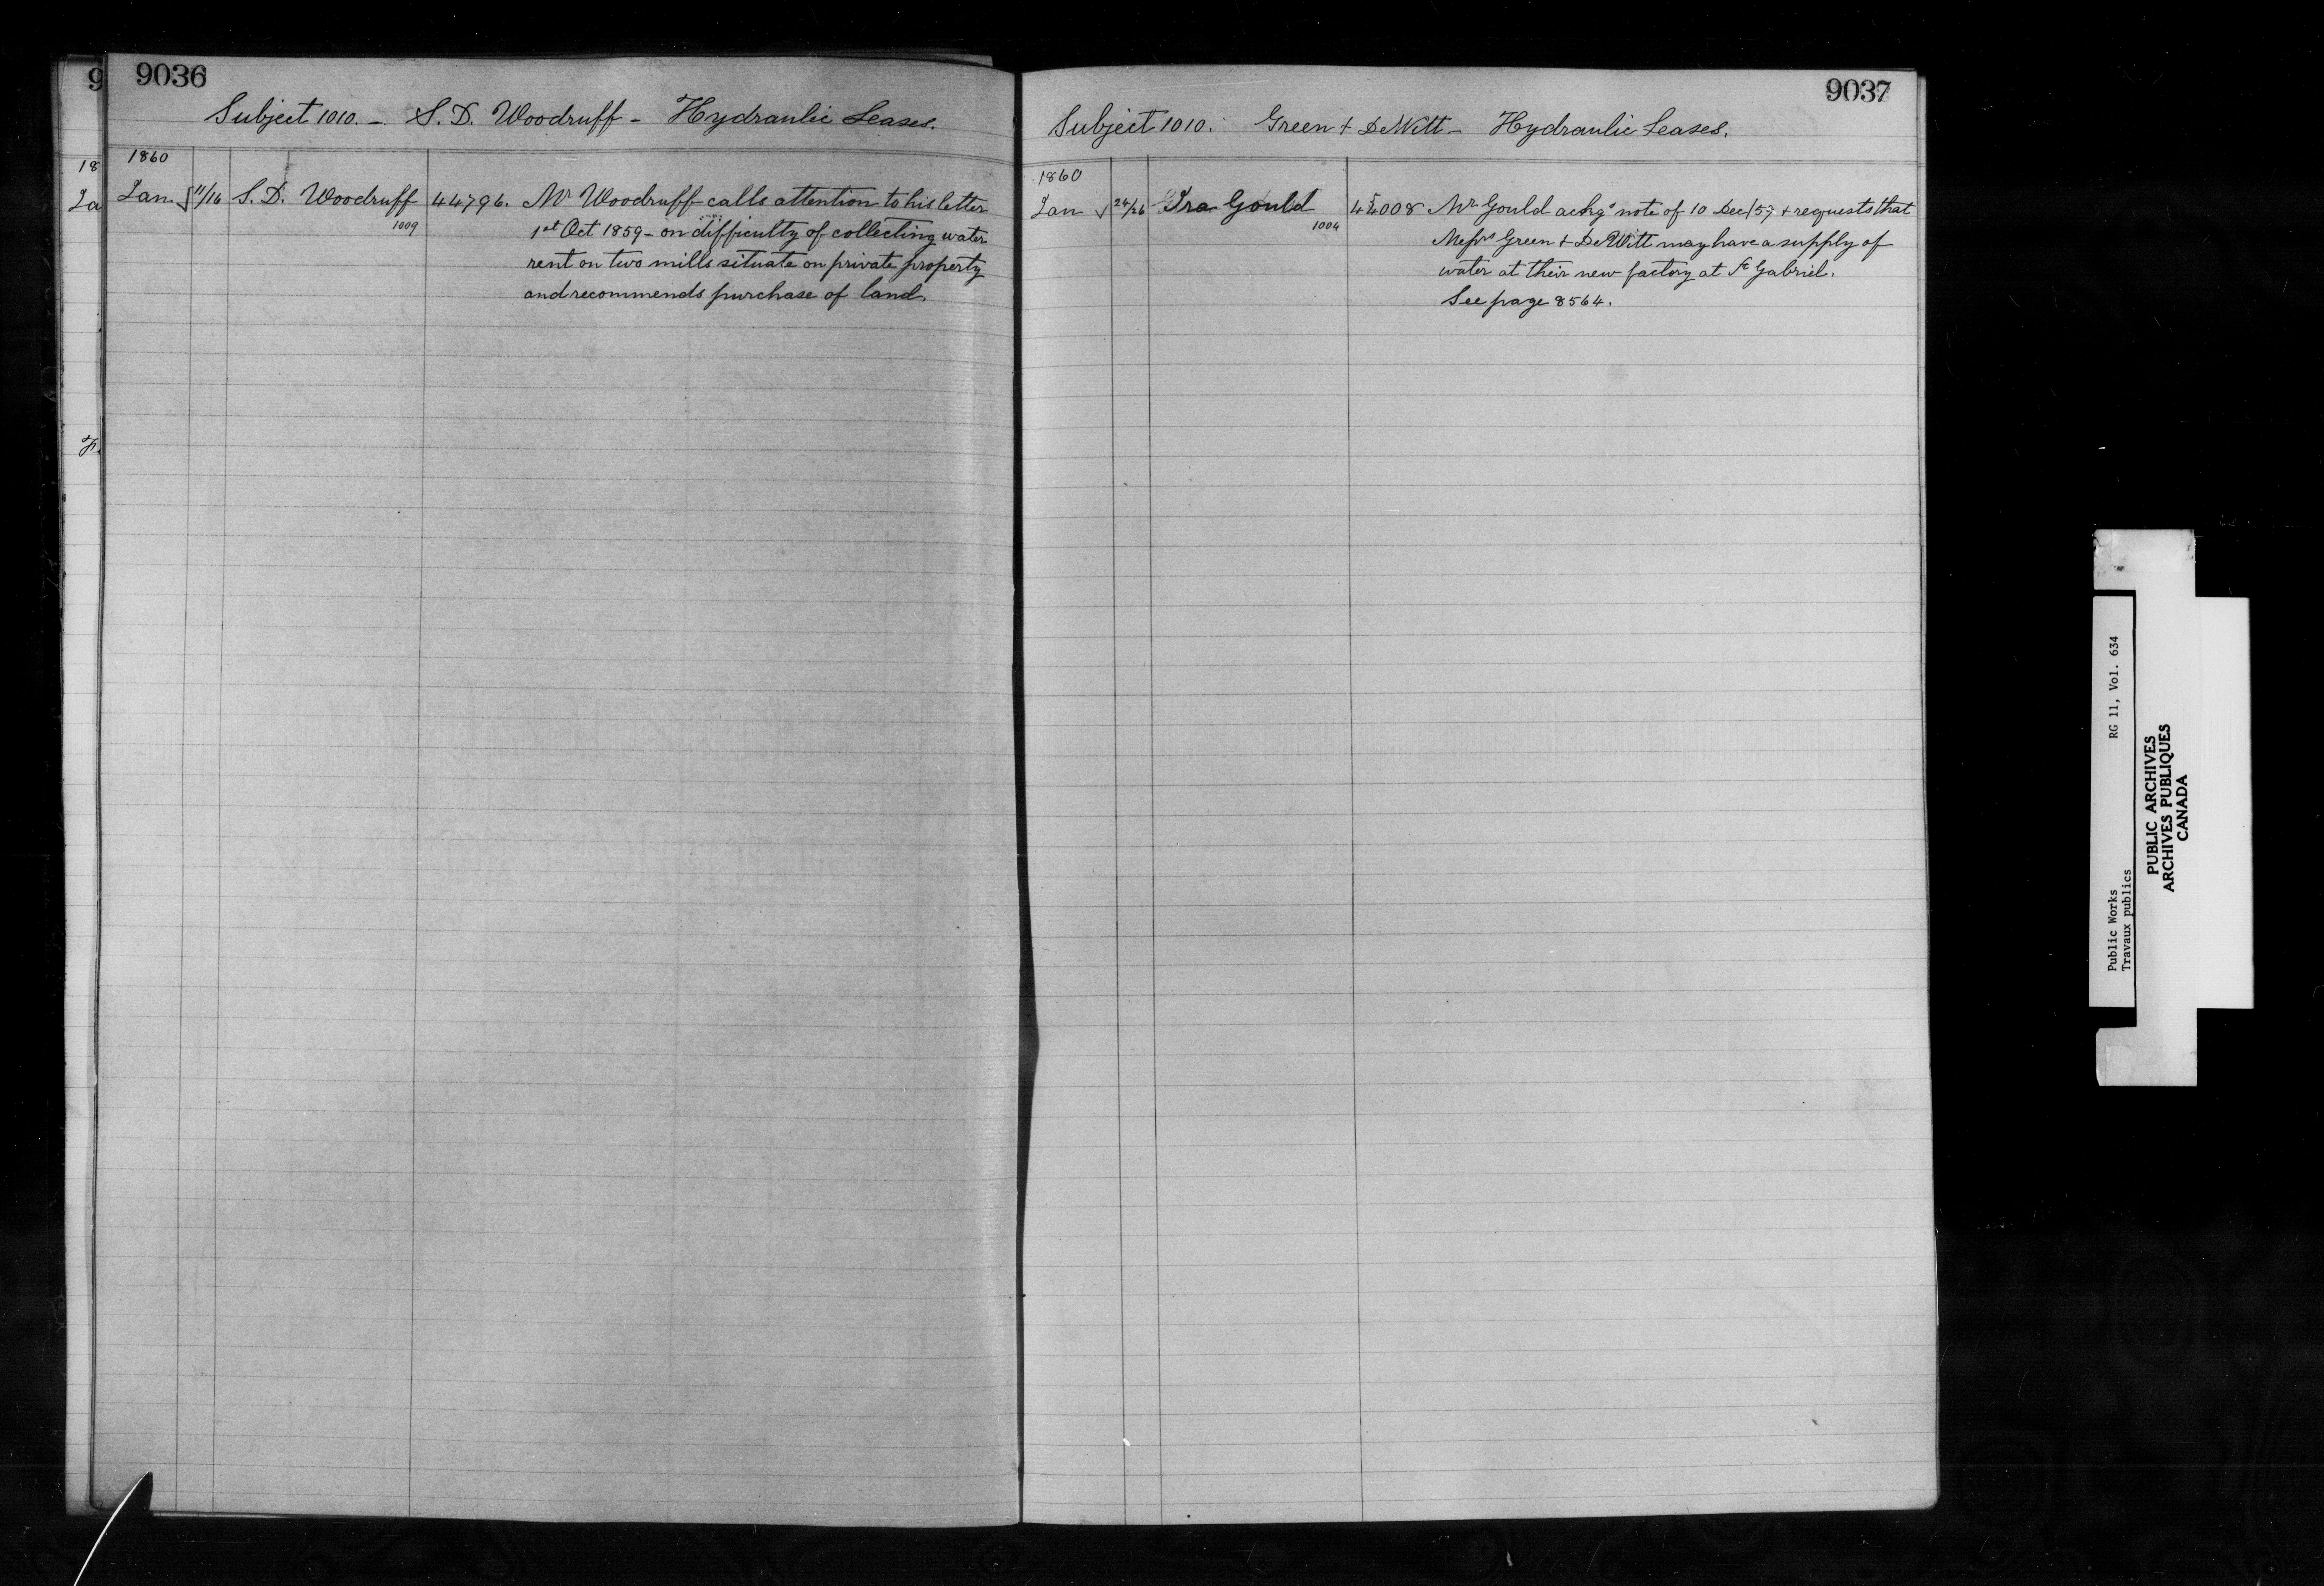 9
18
Ja
F.
9036
Subject 1010. - S. D. Woodruff - Hydraulic Leases.
1860
Jan. 11/16 S. D. Woodruff 44796. Mr Woodruff calls attention to his letter
1009
1st Oct 1859 - on difficulty of collecting water
rent on two mills situate on private property
and recommends purchase of land.
9037
Subject 1010. Green + DeWitt - Hydraulic Leases.
1860
Jan 24/26 Ira Gould 45008 Mr Gould ackgs note of 10 Dec/57 + requests that
1004
Messrs Green + DeWitt may have a supply of
water at their new factory at St Gabriel.
See page 8564.
Public Works RG 11, Vol. 634
Travaux publics
PUBLIC ARCHIVES
ARCHIVES PUBLIQUES
CANADA